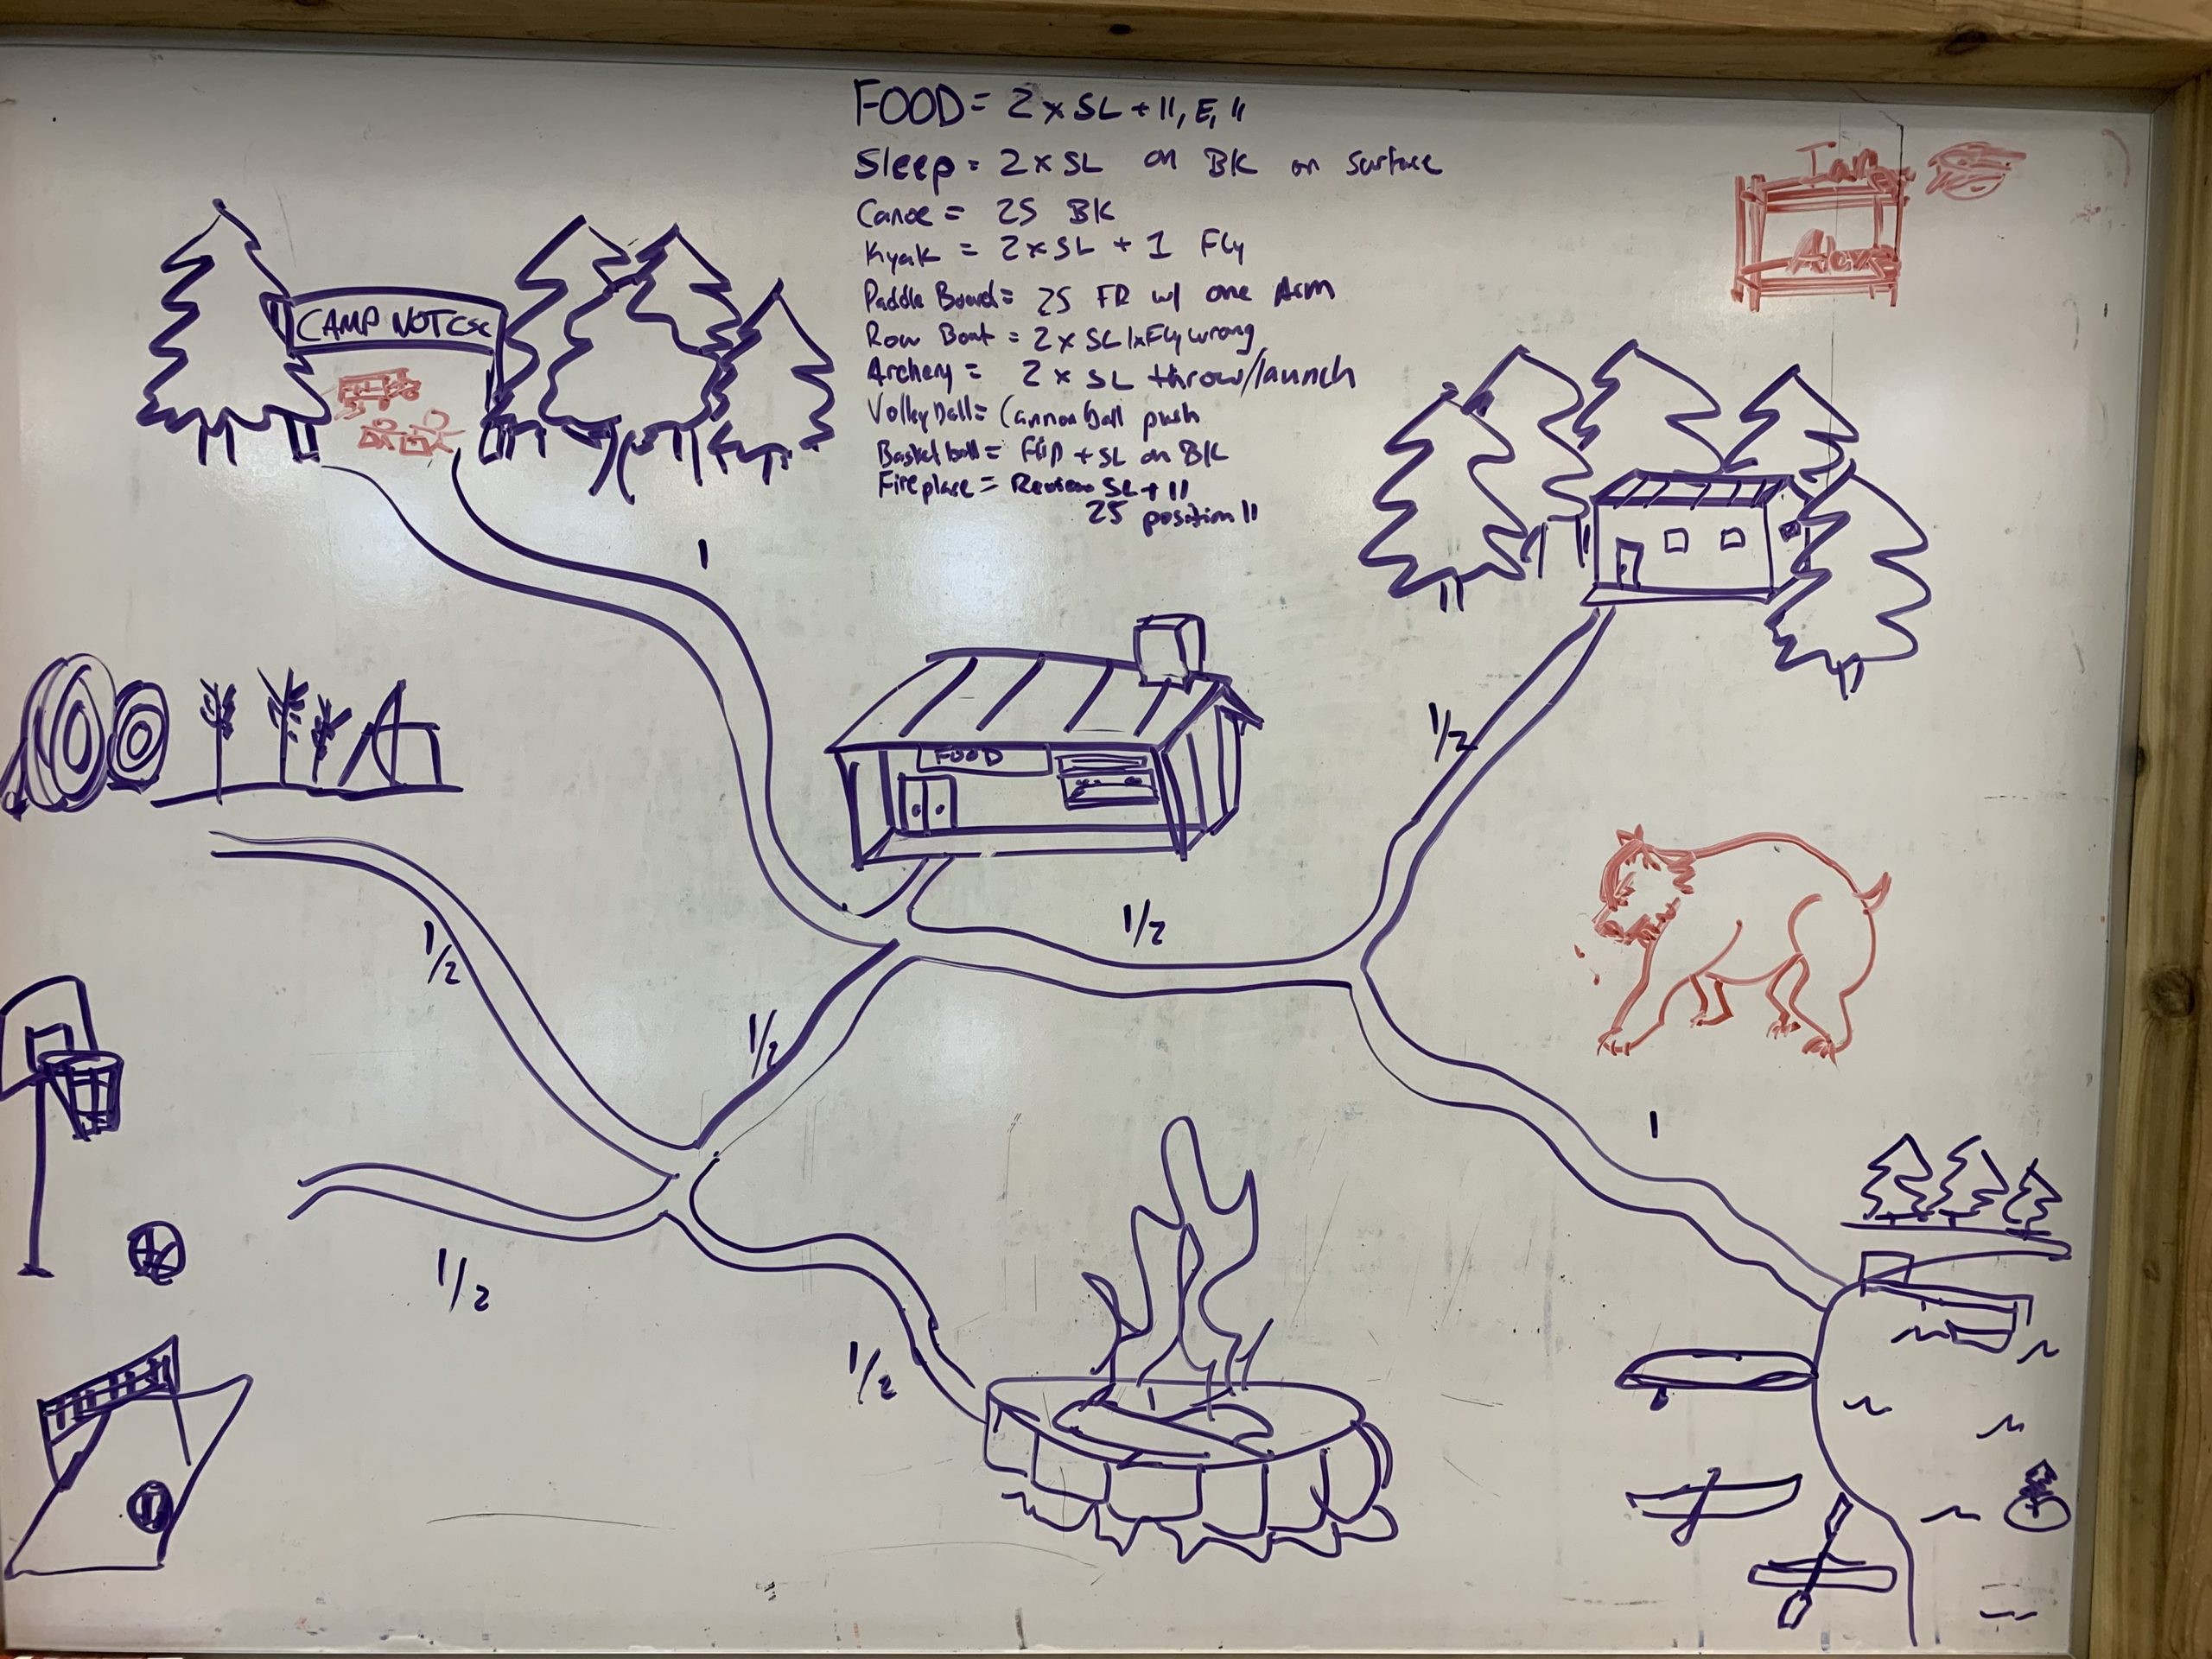 FOOD = 2 x SL + 11, E, 11
Sleep = 2 x SL on BK on surface
Canoe = 25 BK
Kyak = 2 x SL + 1 Fly
Paddle Board = 25 FR w/ one Arm
Row Boat = 2 x SL 1xFly wrong
Archery = 2 x SL throw/launch
Volleyball = Cannonball push
Basketball = Flip + SL on BK
Fireplace = SL + 11
25 position 11
Ian
CAMP
1
FOOD
1/2
1/2
1/2
1/2
1
1/2
1/2